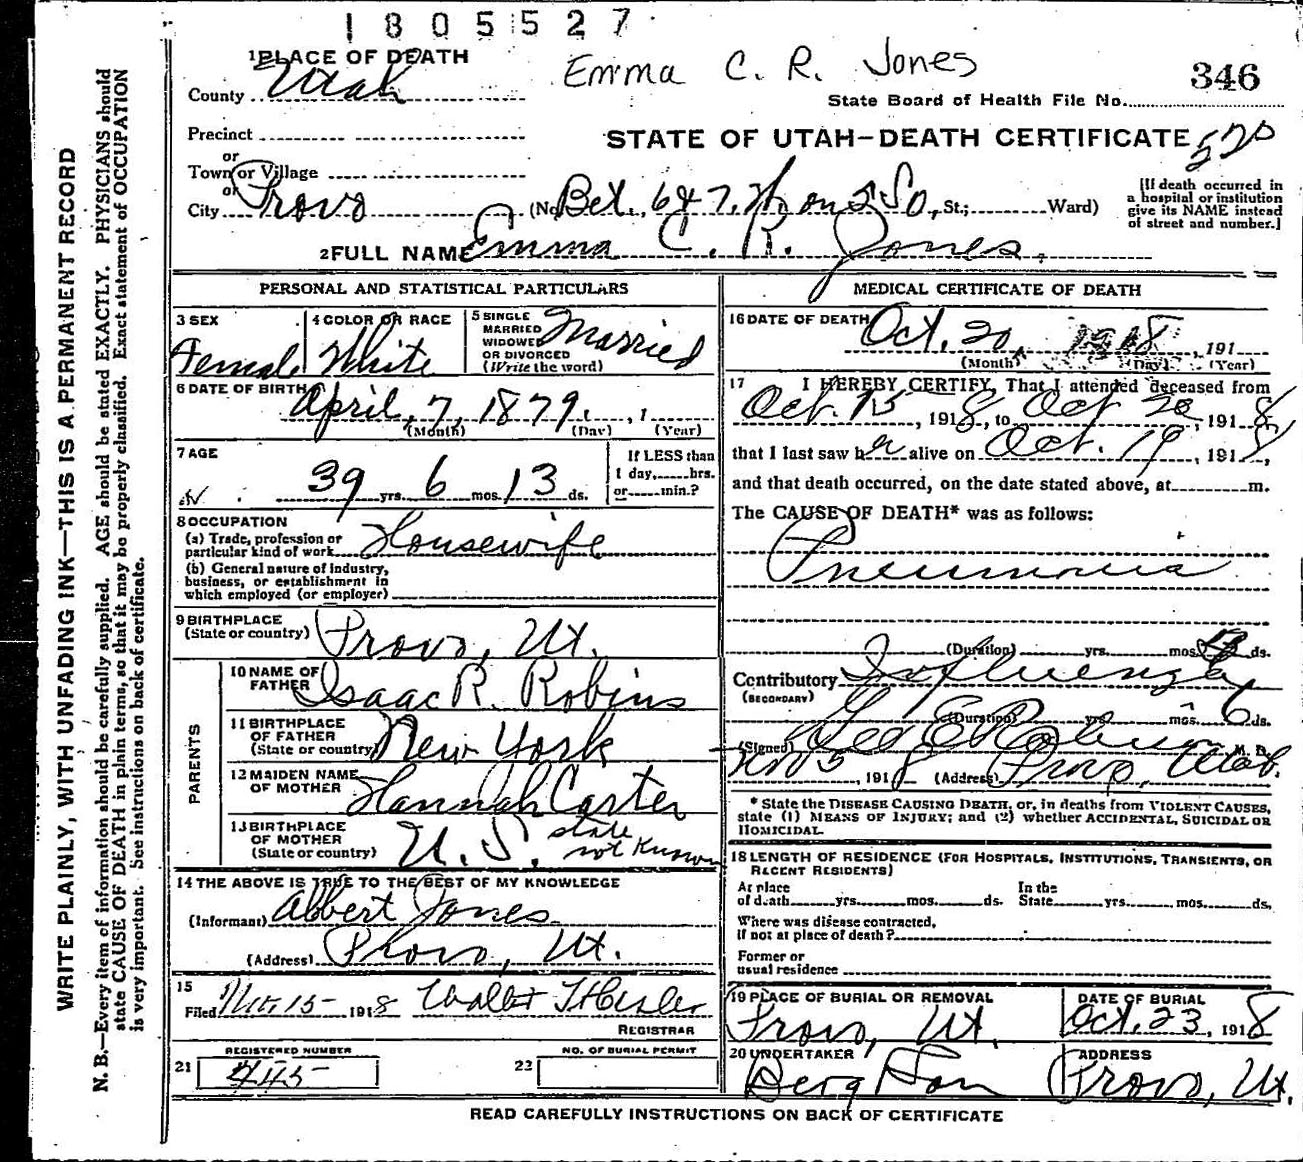 1805527
1 PLACE OF DEATH
Emma C. R. Jones
346
County Utah
State Board of Health File No.
Precinct
STATE OF UTAH—DEATH CERTIFICATE
520
or
Town or Village
or
City Provo (No. Bet. 6 & 7. W on 2 So, St.; Ward)
[If death occurred in
a hospital or institution
give its NAME instead
of street and number.]
2 FULL NAME Emma C. R. Jones.
PERSONAL AND STATISTICAL PARTICULARS
3 SEX
Female
4 COLOR OR RACE
White
5 SINGLE
MARRIED
WIDOWED
OR DIVORCED
(Write the word)
Married
6 DATE OF BIRTH
April, 7, 1879. , 1
(Month) (Day) (Year)
7 AGE
39 yrs. 6 mos. 13 ds.
If LESS than
1 day, hrs.
or min.?
8 OCCUPATION
(a) Trade, profession or
particular kind of work Housewife
(b) General nature of industry,
business, or establishment in
which employed (or employer)
9 BIRTHPLACE
(State or country) Provo, Ut.
PARENTS
10 NAME OF
FATHER Isaac R. Robins
11 BIRTHPLACE
OF FATHER
(State or country) New York
12 MAIDEN NAME
OF MOTHER Hannah Carter
13 BIRTHPLACE
OF MOTHER
(State or country) U. S. state
not known
14 THE ABOVE IS TRUE TO THE BEST OF MY KNOWLEDGE
(Informant) Albert Jones
(Address) Provo, Ut.
15
Filed 15 1918
REGISTRAR
REGISTERED NUMBER
21 445
NO. OF BURIAL PERMIT
22
MEDICAL CERTIFICATE OF DEATH
16 DATE OF DEATH
Oct. 20, 1918, 191
(Month) (Day) (Year)
17 I HEREBY CERTIFY, That I attended deceased from
Oct. 15, 1918, to Oct 20 1918
that I last saw her alive on Oct. 19, 1918,
and that death occurred, on the date stated above, at m.
The CAUSE OF DEATH* was as follows:
Pneumonia
(Duration) yrs. mos. ds.
Contributory Influenza
(SECONDARY)
(Duration) yrs. mos. 6 ds.
(Signed) Geo E Robison M. D.
Nov 5, 1918 (Address) Provo, Utah.
* State the DISEASE CAUSING DEATH, or, in deaths from VIOLENT CAUSES,
state (1) MEANS OF INJURY; and (2) whether ACCIDENTAL, SUICIDAL OR
HOMICIDAL.
18 LENGTH OF RESIDENCE (FOR HOSPITALS, INSTITUTIONS, TRANSIENTS, OR
RECENT RESIDENTS)
At place
of death yrs. mos. ds.
In the
State yrs. mos. ds.
Where was disease contracted,
If not at place of death?
Former or
usual residence
19 PLACE OF BURIAL OR REMOVAL
Provo, Ut.
DATE OF BURIAL
Oct. 23, 1918
20 UNDERTAKER
Berg Son
ADDRESS
Provo, Ut.
READ CAREFULLY INSTRUCTIONS ON BACK OF CERTIFICATE
WRITE PLAINLY, WITH UNFADING INK—THIS IS A PERMANENT RECORD
N. B.—Every item of information should be carefully supplied. AGE should be stated EXACTLY. PHYSICIANS should
state CAUSE OF DEATH in plain terms, so that it may be properly classified. Exact statement of OCCUPATION
is very important. See instructions on back of certificate.